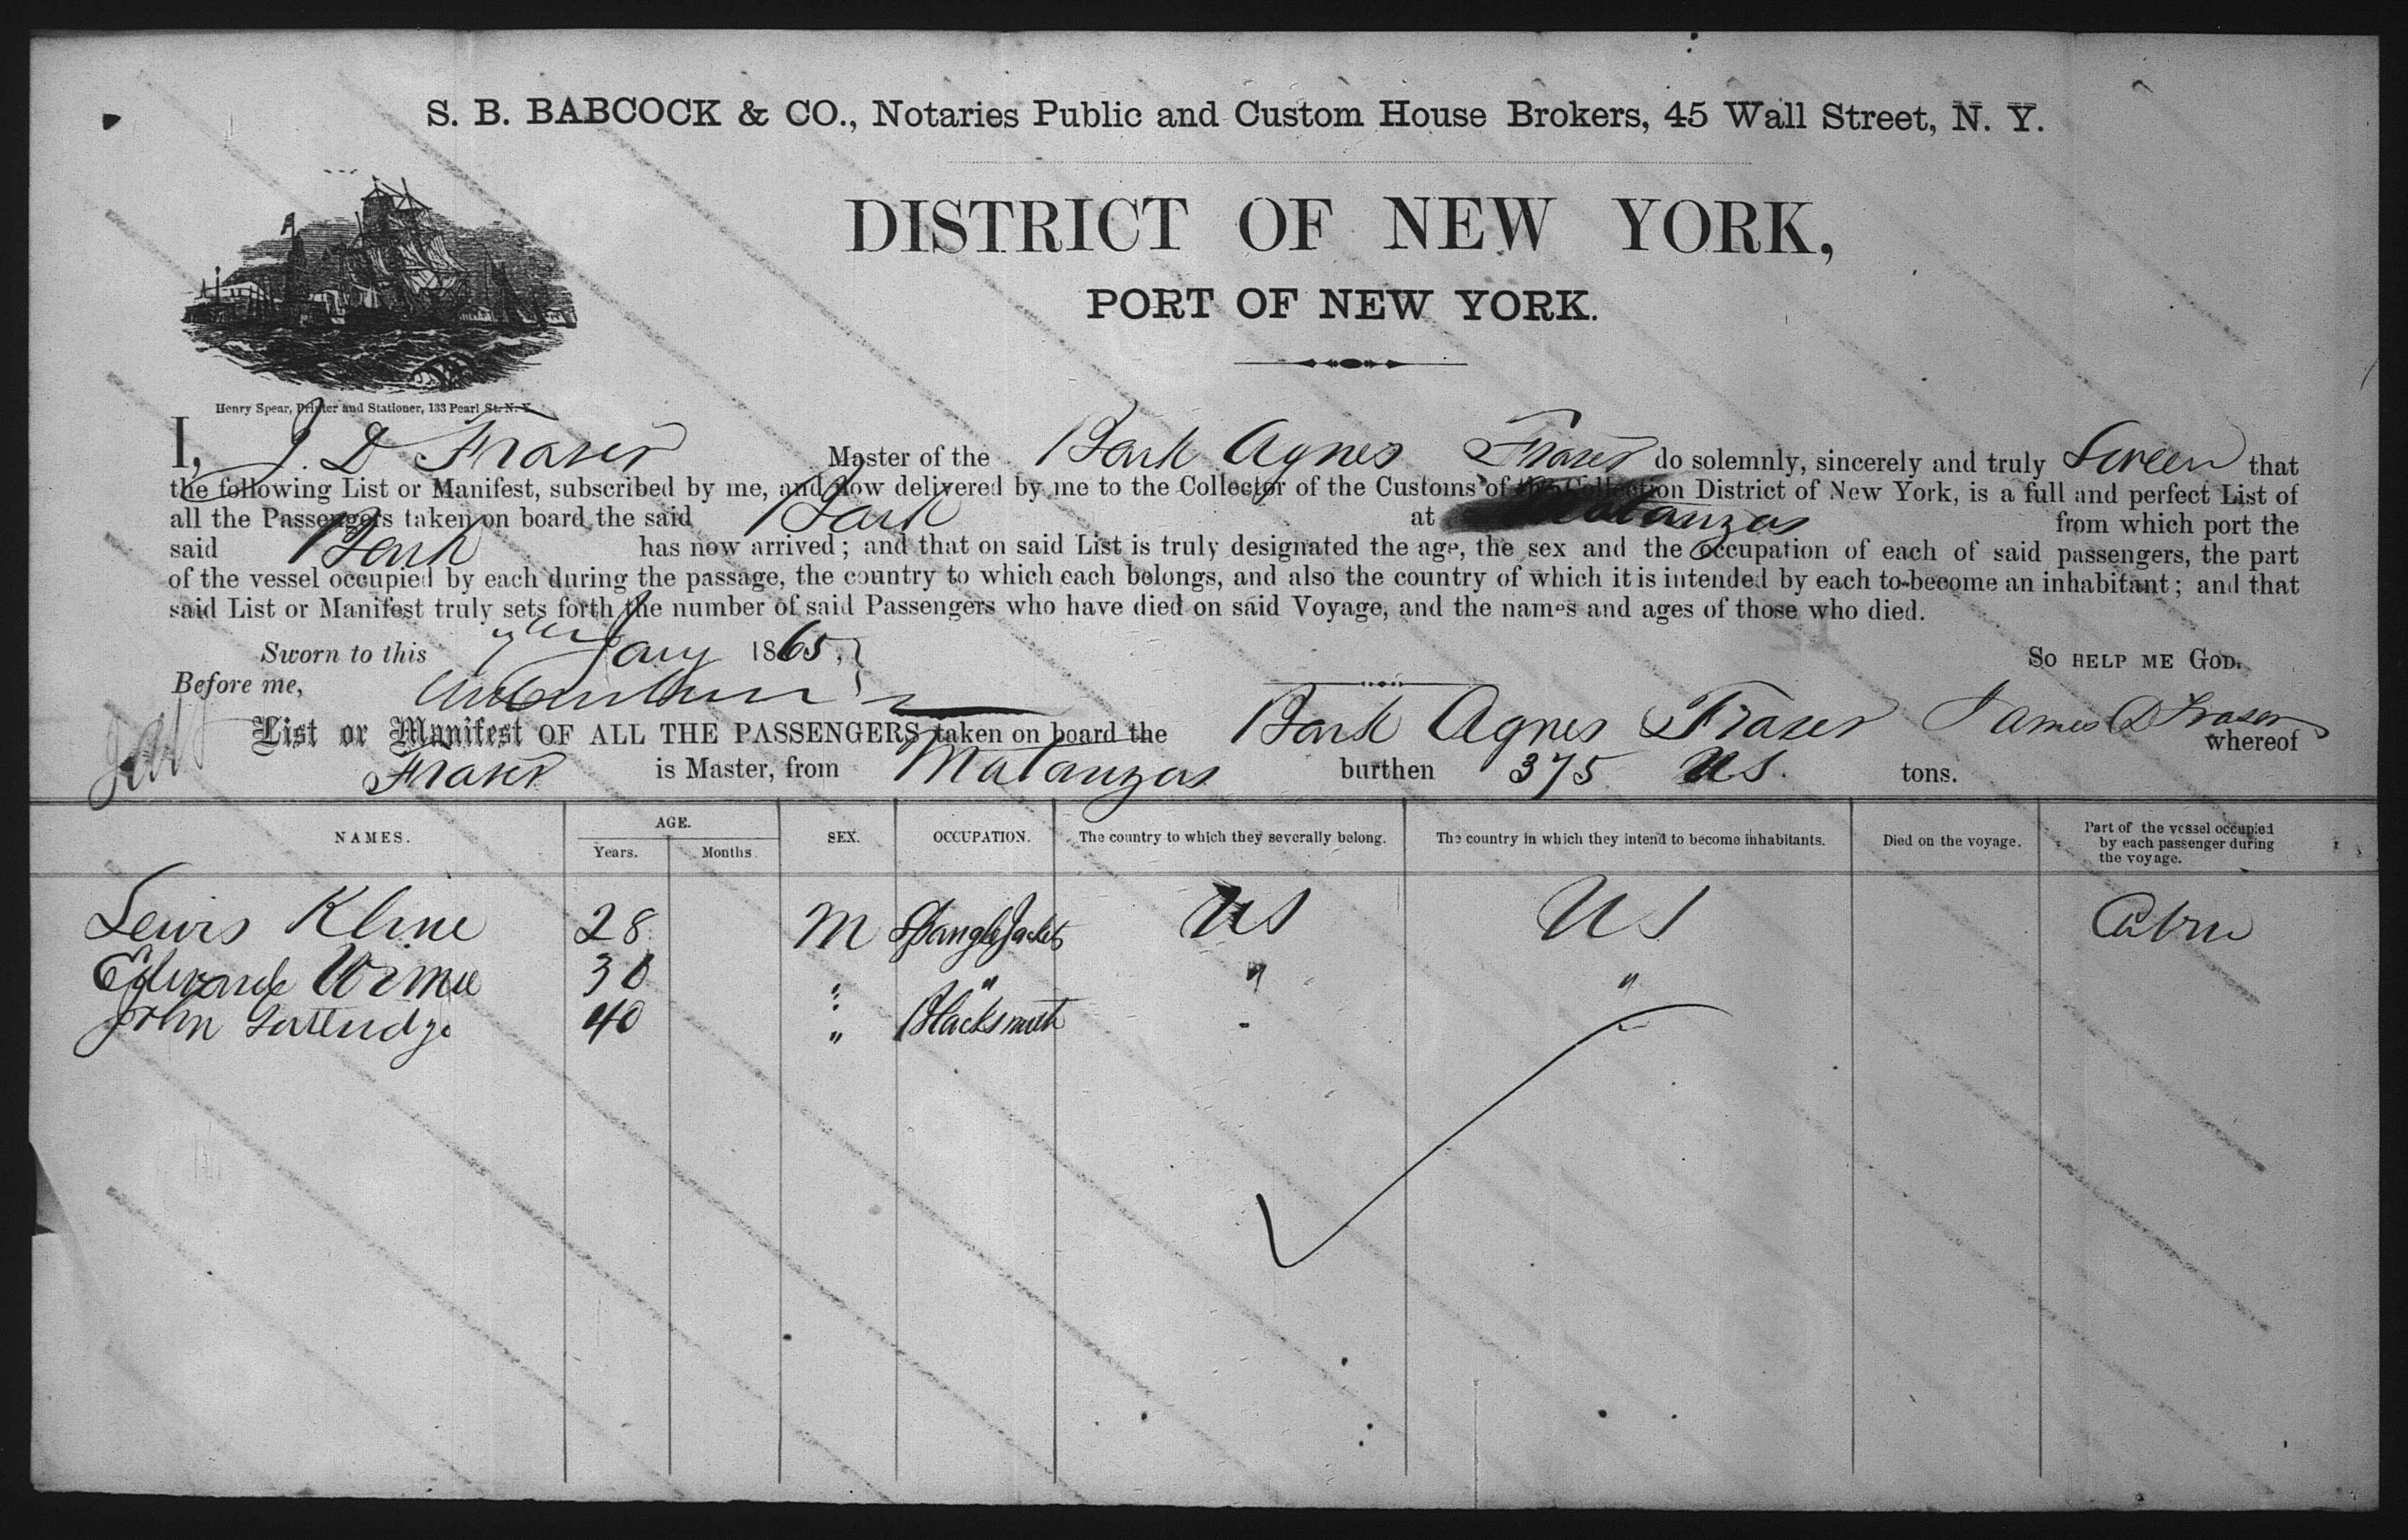 S. B. BABCOCK & CO., Notaries Public and Custom House Brokers, 45 Wall Street, N. Y.
DISTRICT OF NEW YORK,
PORT OF NEW YORK.
Henry Spear, Printer and Stationer, 133 Pearl St. N. Y.
I, J. D Fraser Master of the Bark Agnes Fraser do solemnly, sincerely and truly Swear that
the following List or Manifest, subscribed by me, and now delivered by me to the Collector of the Customs of the Collection District of New York, is a full and perfect List of
all the Passengers taken on board the said Bark at Matanzas from which port the
said Bark has now arrived; and that on said List is truly designated the age, the sex and the occupation of each of said passengers, the part
of the vessel occupied by each during the passage, the country to which each belongs, and also the country of which it is intended by each to become an inhabitant; and that
said List or Manifest truly sets forth the number of said Passengers who have died on said Voyage, and the names and ages of those who died.
Sworn to this 7th Jany 1865, So HELP ME GOD.
Before me,
James D Fraser
List or Manifest OF ALL THE PASSENGERS taken on board the Bark Agnes Fraser whereof
Fraser is Master, from Matanzas burthen 375 US. tons.
NAMES. AGE. Years. Months. SEX. OCCUPATION. The country to which they severally belong. The country in which they intend to become inhabitants. Died on the voyage. Part of the vessel occupied by each passenger during the voyage.
Lewis Kline 28 M US US Cabin
Edward 30 " " " "
John 40 " Blacksmith